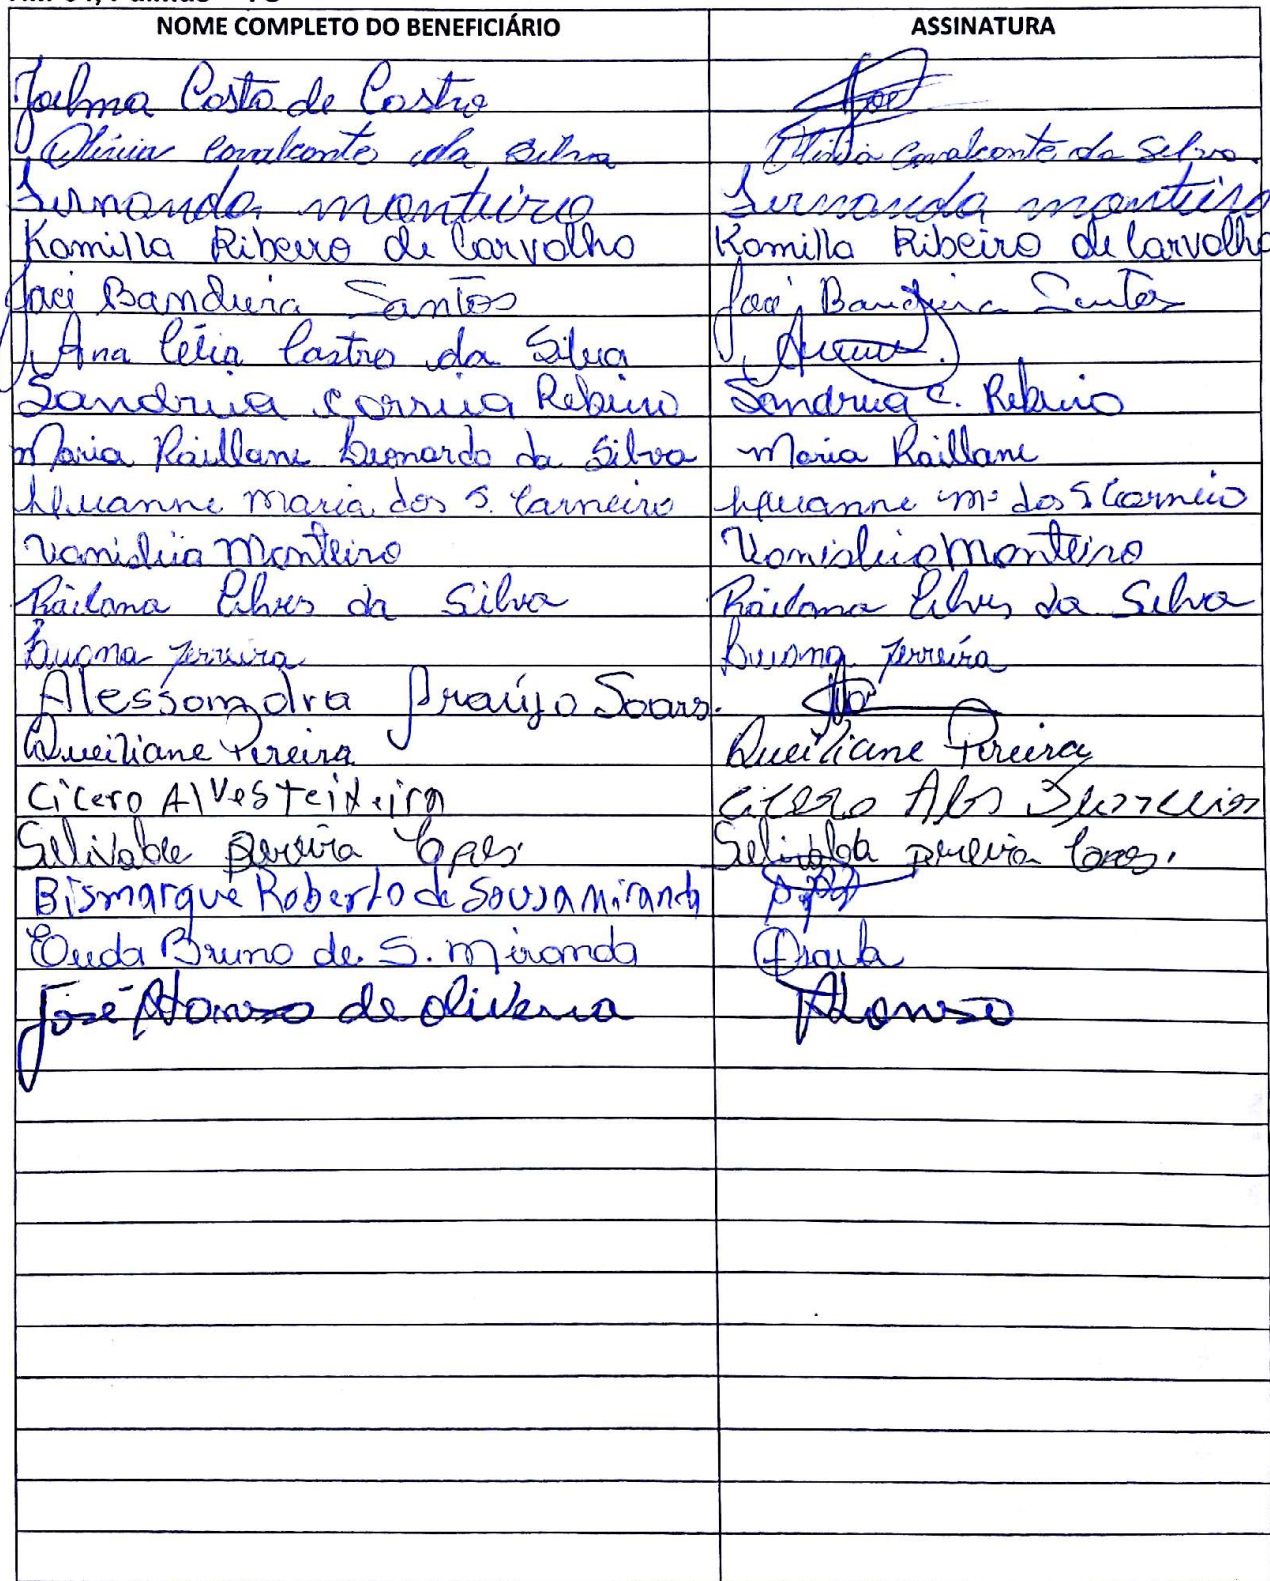 NOME COMPLETO DO BENEFICIÁRIO ASSINATURA
Joelma Costa de Castro Joe
Olivia Cavalcante da Silva Olivia Cavalcante da Silva
Fernanda monteiro Fernanda monteiro
Kamilla Ribeiro de Carvalho Kamilla Ribeiro de Carvalho
Jaci Bandeira Santos Jaci Bandeira Santos
Ana Célia Castro da Silva
Sandreia Correia Rebeiro Sandreia C. Rebeiro
Maria Raillane Leonardo da Silva Maria Raillane
maria dos S. Carneiro mª dos S Carneiro
Vanideia Monteiro Monteiro
Raidana Alves da Silva Raidana Alves da Silva
Luana ferreira Luana ferreira
Alessandra Araújo Soars.
Queiliane Pereira Queiliane Pereira
Cicero Alves teixeira Cicero
Pereira Lopes. pereira Lopes.
Bismarque Roberto de Sousa Miranda
Bruno de S. Miranda
José Afonso de oliveira Afonso